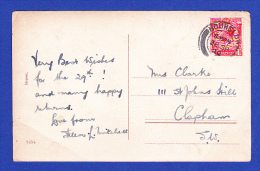 Very Best Wishes
for the 29th!
and many happy
returns.
Love from
Mrs Clarke
111 St Johns Hill
Clapham
S.W.